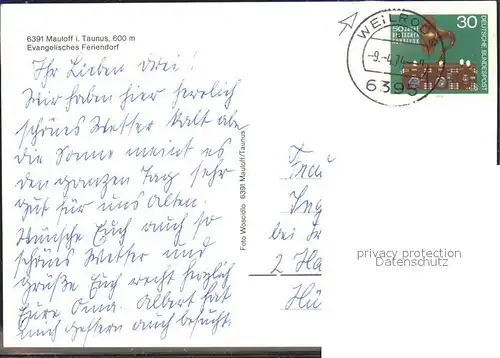 6391 Mauloff i. Taunus, 600 m
Evangelisches Feriendorf
Ihr Lieben drei!
Wir haben hier herrlich
schönes Wetter kalt aber
die Sonne meint es
den ganzen Tag sehr
gut für uns Alten.
Wünsche Euch auch so
schönes Wetter und
grüße Euch recht herzlich
Eure Oma. Albert hat
mich gestern auch besucht.
Foto Woscidlo 6391 Mauloff/Taunus
WEILROD
-9.-4.74
6395
50 JAHRE
DEUTSCHER
RUNDFUNK
30
DEUTSCHE BUNDESPOST
Frau
Ing
bei
2 Ha
Hü
privacy protection
Datenschutz